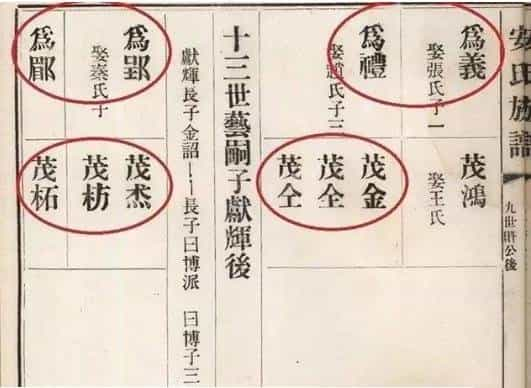 安氏族譜
九世 公後
爲義
娶張氏子一
茂鴻
娶王氏
爲禮
娶趙氏子三
茂金
茂全
茂仝
十三世藝嗣子獻輝後
獻輝長子金詔——長子曰博派 曰博子三
爲郢
娶秦氏子
爲
茂杰
茂枋
茂柘